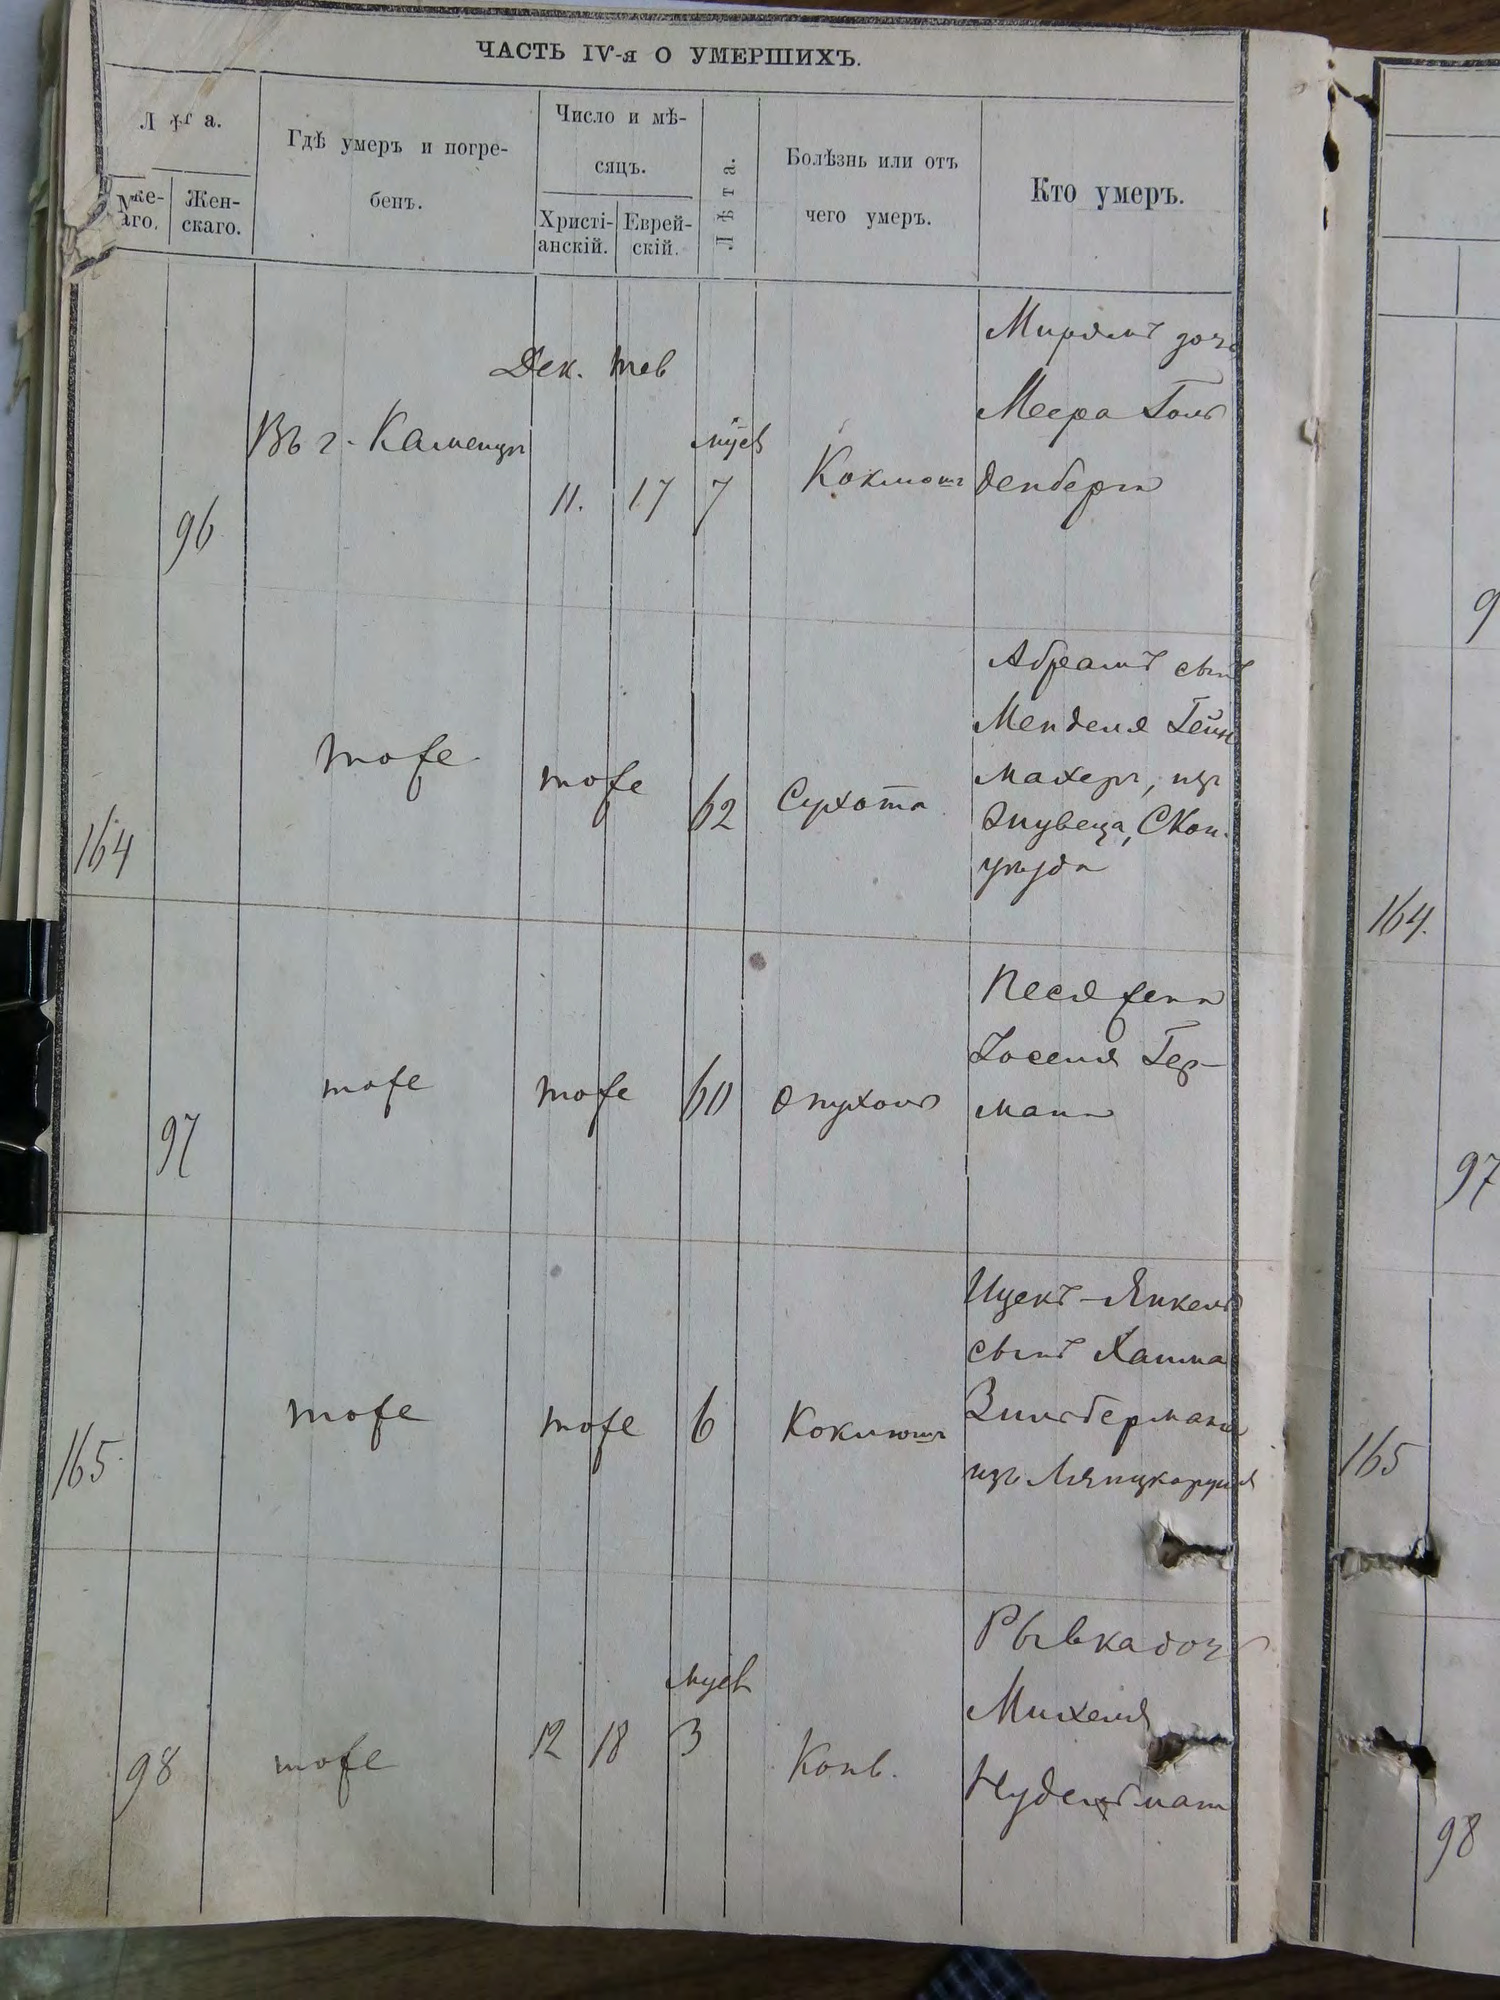 ЧАСТЬ IV-я О УМЕРШИХЪ.
Л ѣт а.
Муже-
скаго.
Жен-
скаго.
Гдѣ умеръ и погре-
бенъ.
Число и мѣ-
сяцъ.
Христі-
анскій.
Еврей-
скій.
Лѣта.
Болѣзнь или отъ
чего умеръ.
Кто умеръ.
96
Въ г. Каменцѣ
Дек. Тев
11. 17
7
Коклюшъ
Мирямъ дочь
Меера Голь
денберга
164
тоже
тоже
62
Сухота
Абрамъ сынъ
Менделя
махеръ, изъ
97
тоже
тоже
60
опухоль
Песя жена
Іоселя Гер-
мана
165
тоже
тоже
6
Коклюшъ
Ицекъ-Янкель
сынъ Хаима
Зильбермана
изъ Ляпцкоруня
98
тоже
12 18
3
Конв.
Рывка доч
Михеля
Нудельман
164.
97
165
98